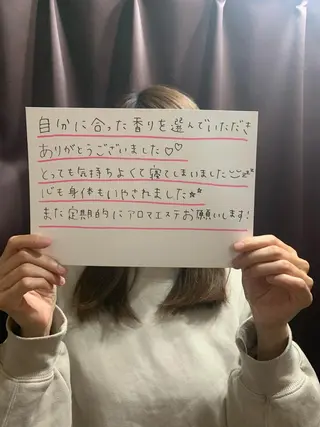 自分に合った香りを選んでいただき
ありがとうございました♡♡
とっても気持ちよくて寝てしまいました
心も身体もいやされました★★
また定期的にアロマエステお願いします!